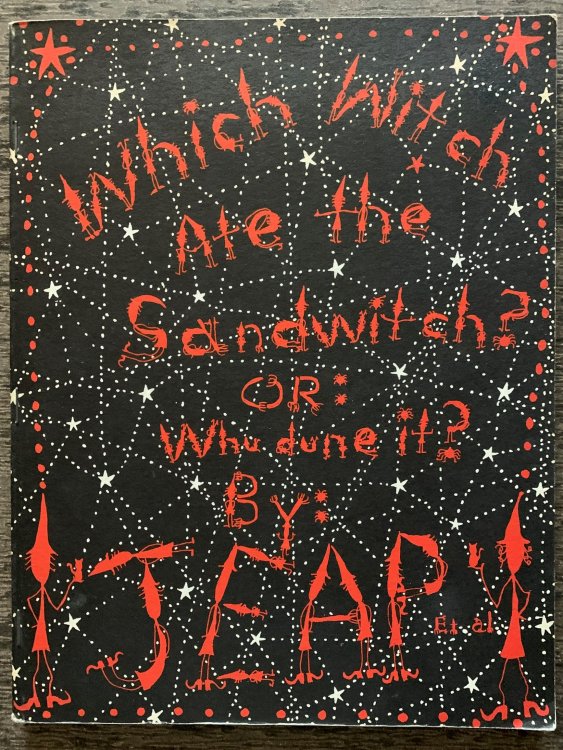 Which Witch
Ate the
Sandwitch?
OR:
Who dune it?
By:
JEAP
Et al